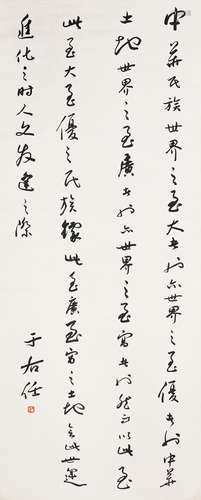 中華民族世界之至大者也亦世界之至優者也中華
土地世界之至廣者也亦世界之至富者也然而以此至
此至大至優之民族據此至廣至富之土地會此世運
進化之時人文發達之際
于右任